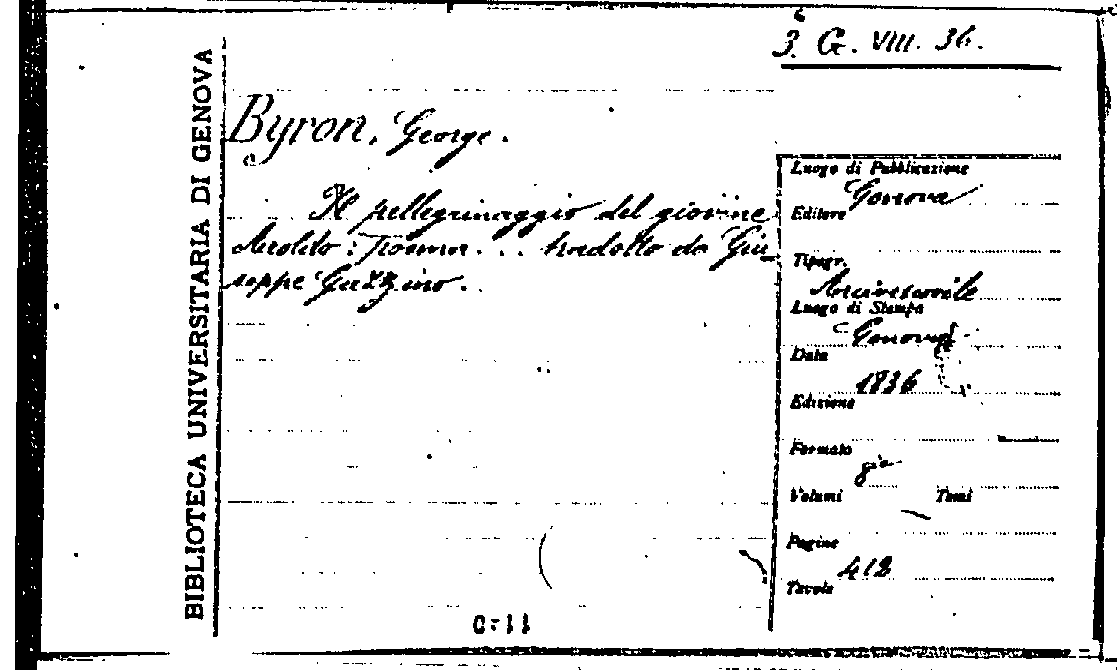 3. G. VIII. 36.
BIBLIOTECA UNIVERSITARIA DI GENOVA
Byron, George.
Il pellegrinaggio del giovine
Aroldo: Poema ... tradotto da Giu-
seppe Gazzino.
Luogo di Pubblicazione
Genova
Editore
Tipogr.
Arcivescovile
Luogo di Stampa
Genova
Data
1836
Edizione
Formato
8°
Volumi Tomi
Pagine
412
Tavole